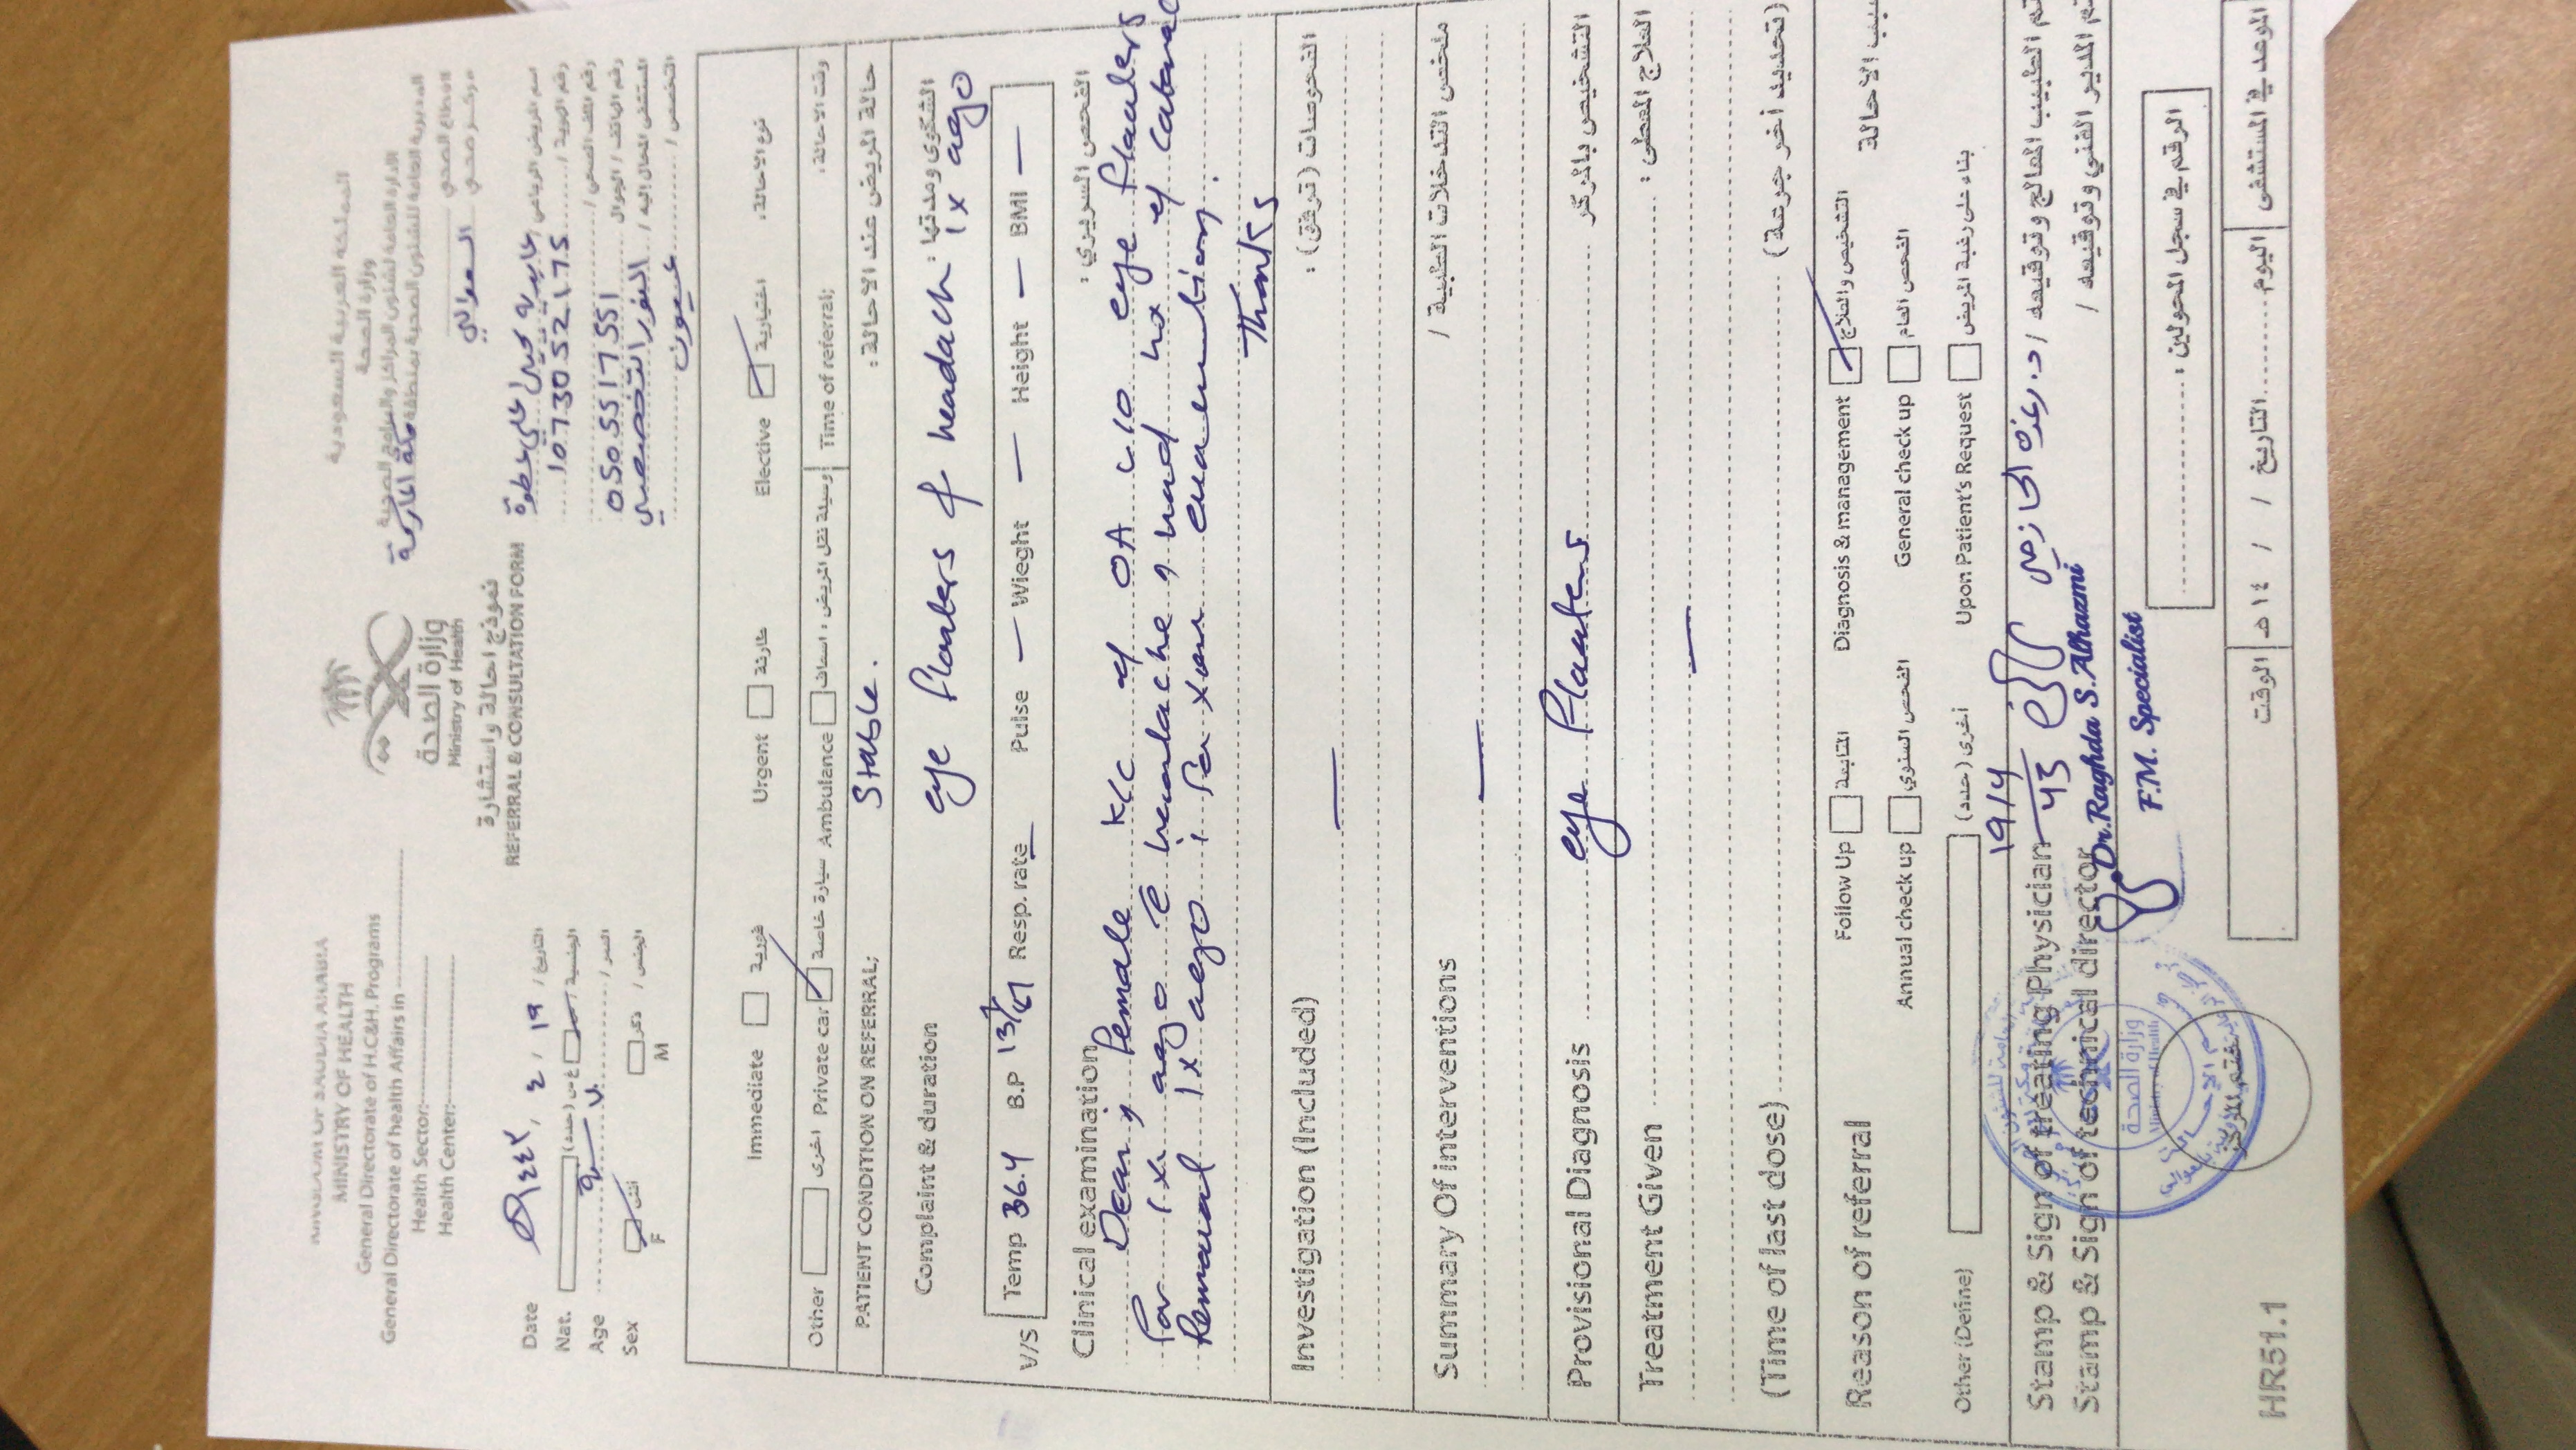 KINGDOM OF SAUDIA ARABIA
MINISTRY OF HEALTH
General Directorate of H.C&H. Programs
General Directorate of health Affairs in
Health Sector:
Health Center:
وزارة الصحة
Ministry of Health
نموذج احالة واستشارة
REFERRAL & CONSULTATION FORM
المملكة العربية السعودية
وزارة الصحة
الادارة العامة لشئون المراكز والبرامج الصحية
المديرية العامة للشئون الصحية بمنطقة مكة المكرمة
القطاع الصحي
مركز صحي العوالي
Date ١٤٤٣ / ٤ / ١٩ التاريخ /
Nat. غ س (حدد) س الجنسية /
Age ٧٠ سنة العمر /
Sex أنثى ذكر الجنس /
F M
اسم المريض الرباعي / يحيى علي عطوة
رقم الهوية / 1073052175
رقم الملف الصحي /
رقم الهاتف / الجوال 0505517551
المستشفى المحال إليه / النور التخصصي
التخصص / عيون
Immediate فورية Urgent طارئة Elective اختيارية نوع الاحالة:
Other اخرى Private car سيارة خاصة Ambulance وسيلة نقل المريض : اسعاف Time of referral; وقت الاحالة:
PATIENT CONDITION ON REFERRAL; Stable. حالة المريض عند الاحالة :
Complaint & duration eye floaters & headach 1x ago الشكوى ومدتها :
V/S Temp 36.4 B.P Resp. rate – Pulse – Wieght – Height – BMI –
Clinical examination الفحص السريري :
Dear, female K/C of OA c/o eye floaters
for 1x ago headache, had hx of catarac
Removal 1x ago
Thanks
Investigation (Included) الفحوصات (ترفق) :
Summary Of interventions ملخص التدخلات الطبية /
Provisional Diagnosis eye floaters التشخيص بالمركز
Treatment Given العلاج المعطى :
(Time of last dose) (تحديد أخر جرعة)
Reason of referral Follow Up المتابعة Diagnosis & management التشخيص والعلاج سبب الاحالة
Annual check up الفحص السنوي General check up الفحص العام
Other (Define) أخرى (حدد) Upon Patient's Request بناء على رغبة المريض
Stamp & Sign of treating Physician 19/4/43 د. رغده الحازمي تم الطبيب المعالج وتوقيعه /
Stamp & Sign of technical director تم المدير الفني وتوقيعه /
Dr.Raghda S.Alhazmi
F.M. Specialist
وزارة الصحة
Ministry of Health
ختم المركز
الرقم في سجل المحولين :
HR51.1
الموعد في المستشفى اليوم التاريخ / / ١٤ هـ الوقت